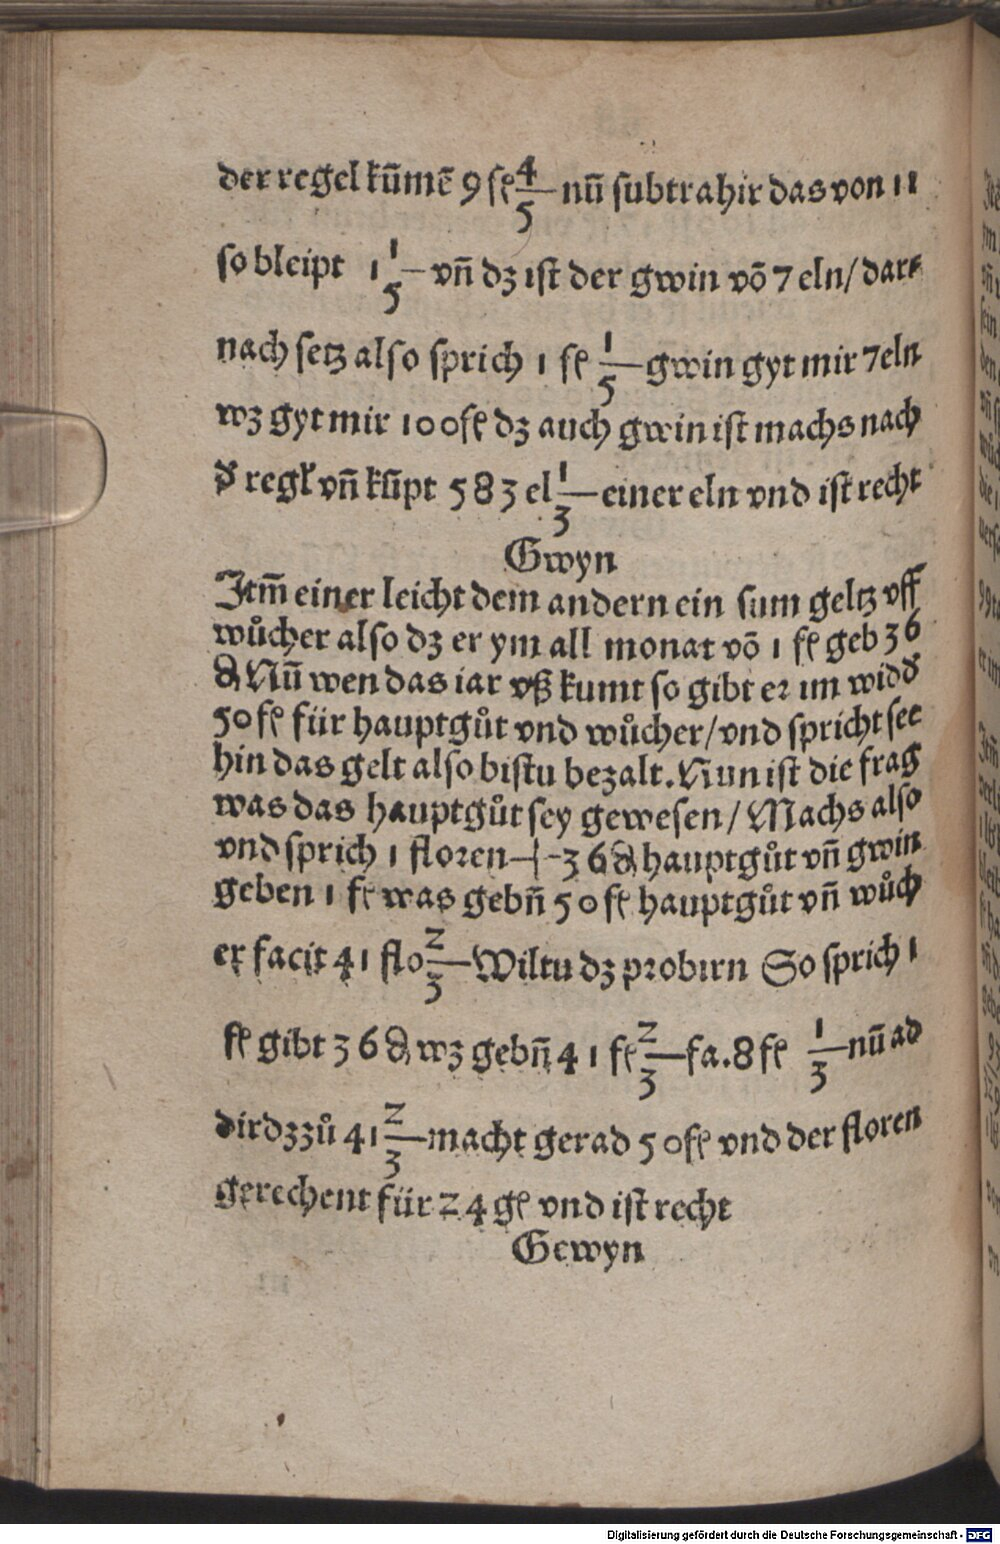 der regel kūmē 9 fł 4/5 nū subtrahir das von 11
so bleipt 1 1/5 vn̄ dz ist der gwin vō 7 eln/ dar⸗
nach setz also sprich 1 fł 1/5 gwin gyt mir 7eln
wz gyt mir 100fł dz auch gwin ist machs nach
d̕ regl̕ vn̄ kūpt 583 el 1/3 einer eln vnd ist recht
Gwyn
Itm̄ einer leicht dem andern ein sum geltz vff
wůcher also dz er ym all monat vō 1 fł geb 36
₰ Nū wen das iar vß kumt so gibt er im widd̕
50fł für hauptgůt vnd wůcher/vnd spricht see
hin das gelt also bistu bezalt. Nun ist die frag
was das hauptgůt sey gewesen/ Machs also
vnd sprich 1 floren + 36 ₰ hauptgůt vn̄ gwin
geben 1 fł was gebn̄ 50 fł hauptgůt vn̄ wůch
er facit 41 flo 2/3 Wiltu dz probirn So sprich 1
fł gibt 36 ₰ wz gebn̄ 41 fł 2/3 fa. 8 fł 1/3 nū ad
dirdzzů 41 2/3 macht gerad 50fł vnd der floren
gerechent für 24 gł vnd ist recht
Gewyn
Digitalisierung gefördert durch die Deutsche Forschungsgemeinschaft - DFG